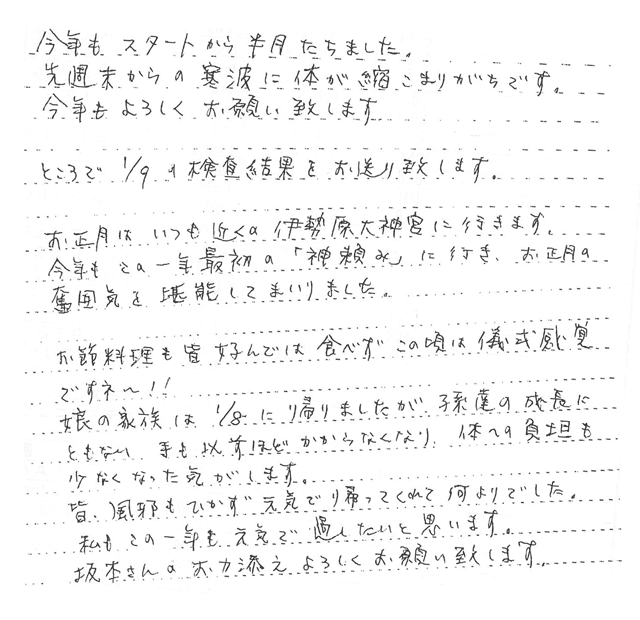 今年も スタートから 半月 たちました。
先週末からの 寒波に 体が 縮こまりがちです。
今年も よろしく お願い 致します
ところで 1/9 の 検査結果を お送り致します。
お正月は いつも 近くの 伊勢原大神宮に 行きます。
今年も この一年 最初の 「神頼み」に 行き、お正月の
雰囲気を 堪能して まいりました。
お節料理も 皆 好んでは 食べず この頃は 儀式感覚
ですネ〜!!
娘の 家族は 1/8 に 帰りましたが 孫達の 成長に
ともない 手も 以前ほど かからなくなり、体への 負担も
少なくなった 気が します。
皆、風邪も ひかず 元気で 帰ってくれて 何よりでした。
私も この一年も 元気で 過したいと 思います。
坂本さんの お力添え よろしく お願い 致します。